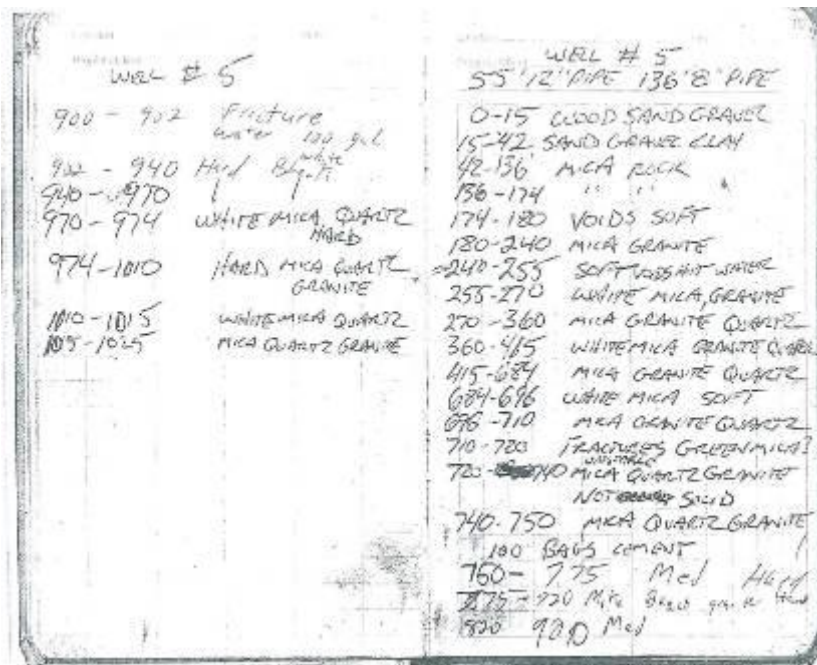 WELL # 5
900 - 902 Fricture
water 100 gal
902 - 940 Hard white
940 - 970 " "
970 - 974 WHITE MICA QUARTZ
HARD
974-1010 HARD MICA QUARTZ
GRANITE
1010-1015 WHITE MICA QUARTZ
1015-1025 MICA QUARTZ GRANITE
WELL # 5
55' 12" PIPE 136' 8" PIPE
0-15 WOOD SAND GRAVEL
15-42 SAND GRAVEL CLAY
42-136 MICA ROCK
136-174 " "
174-180 VOIDS SOFT
180-240 MICA GRANITE
240-255 SOFT VOIDS HIT WATER
255-270 WHITE MICA, GRANITE
270-360 MICA GRANITE QUARTZ
360-415 WHITE MICA GRANITE QUARTZ
415-684 MICA GRANITE QUARTZ
684-696 WHITE MICA SOFT
696-710 MICA GRANITE QUARTZ
710-720 FRACTURES GREEN MICA?
UNSTABLE
720-740 MICA QUARTZ GRANITE
NOT SOLID
740-750 MICA QUARTZ GRANITE
100 BAGS CEMENT
760-775 Med Hard
775-820
820 900 Med